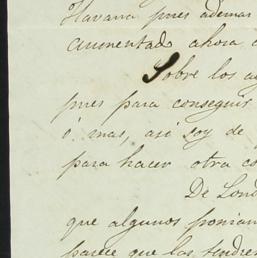 Havana pues ademas
aumentado ahora
Sobre los
pues para conseguir
ó mas, asi soy de
para hacer otra co
De Lond
que algunos ponian
parece que las tendre